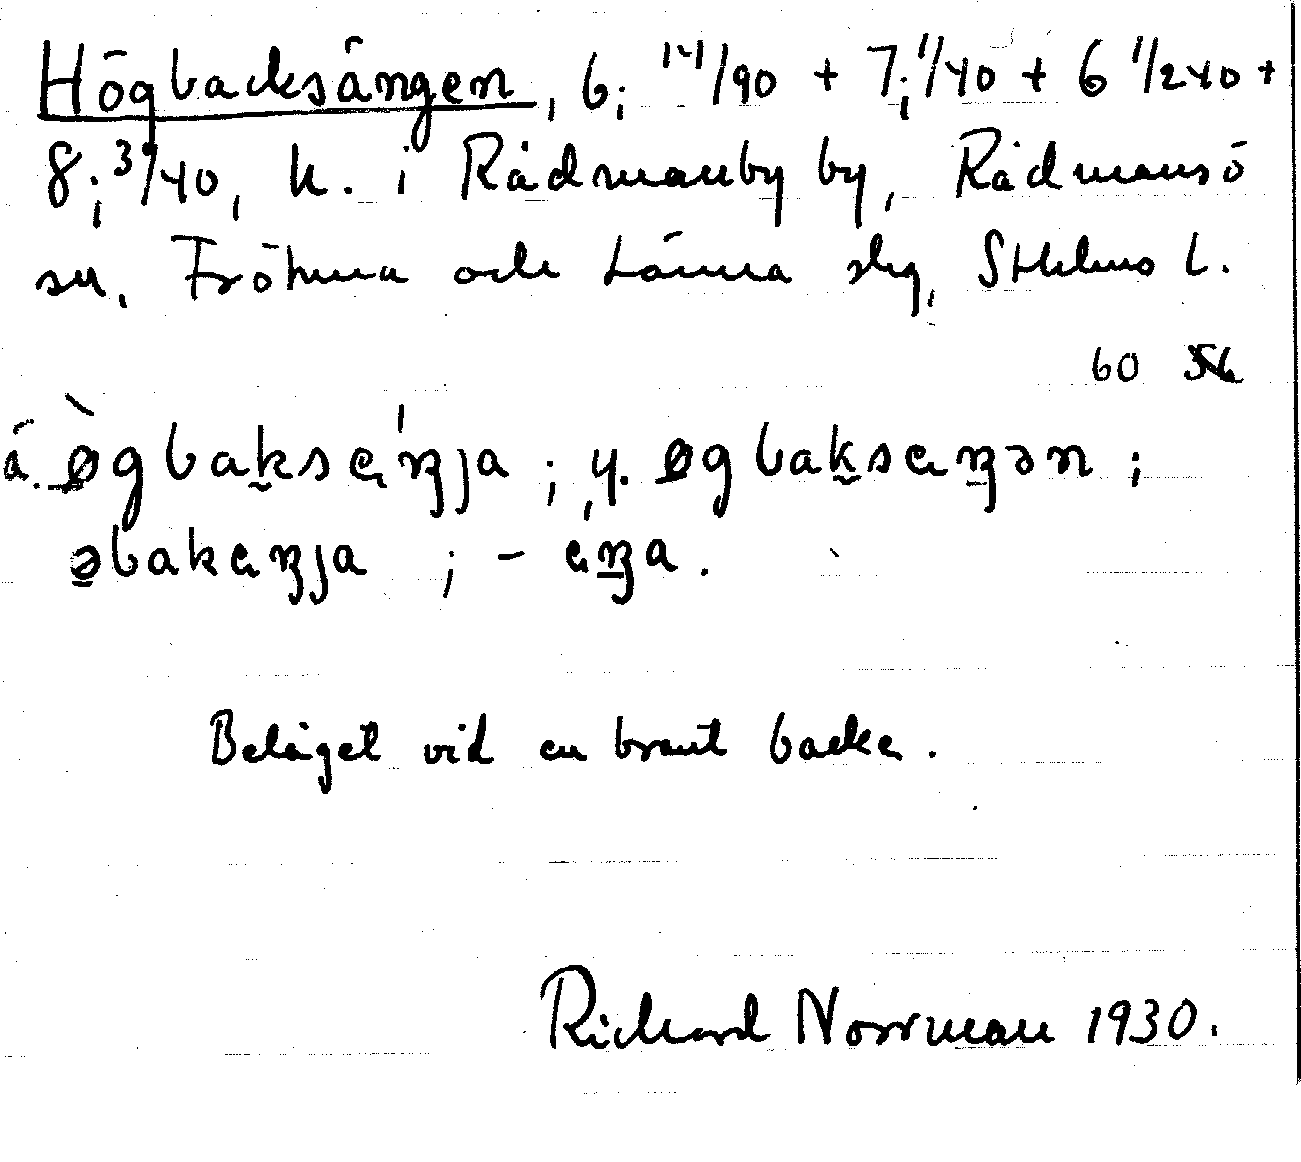 Högbacksängen, 6; 14/90 + 7; 1/40 + 6 1/240 +
8; 31/40, h. i Rådmanby by, Rådmansö
sn, Frötuna och Länna slg, Sthlms l.
60
ä. øgbaksɛŋja ; y. øgbaksɛŋən ;
əbakɛŋja ; – ɛŋa.
Beläget vid en brant backe.
Richard Norrman 1930.